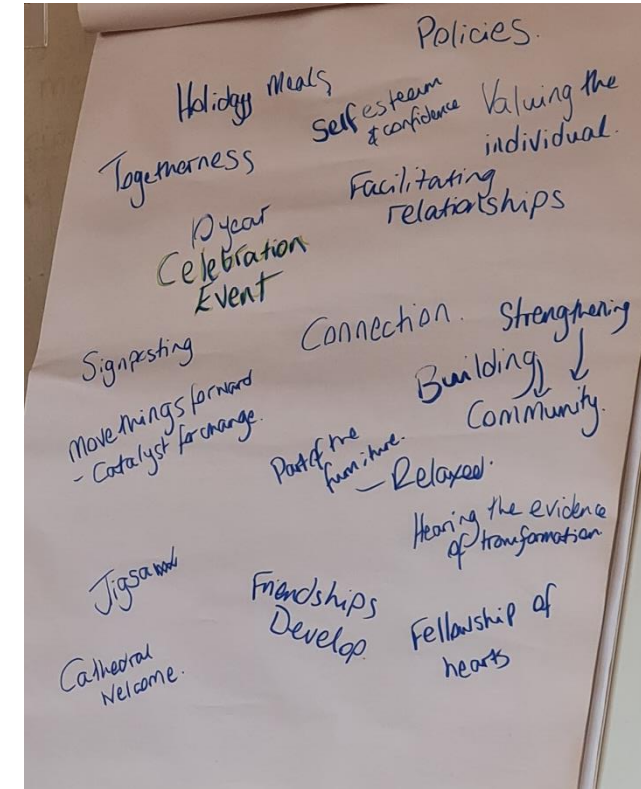 Policies.
Holiday Meals
Self esteem
& confidence
Valuing the
individual.
Togetherness
Facilitating
relationships
10 year
Celebration
Event
Signposting
Connection.
Strengthening
Building
Community.
Move things forward
- Catalyst for change.
Part of the
furniture.
- Relaxed.
Hearing the evidence
of transformation
Jigsaw
Friendships
Develop
Fellowship of
hearts
Cathedral
Welcome.